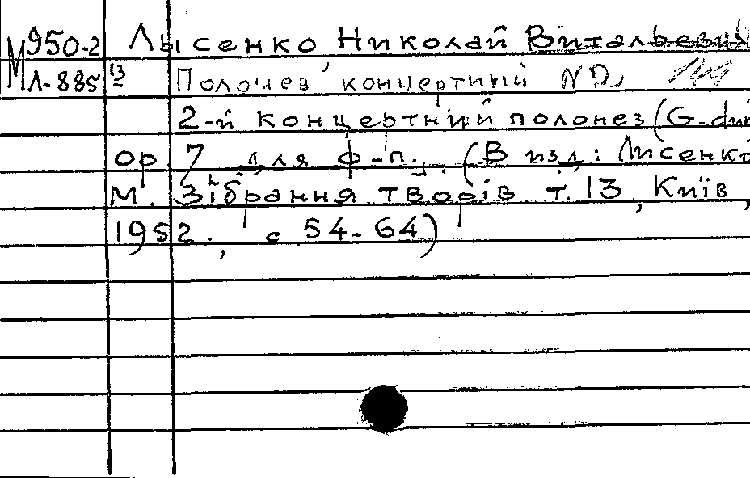 М950-2 Лысенко, Николай Витальевич
Л-885 13 Полонез концертный №2,
2-й концертный полонез (G-dur
ор. 7 для ф-п. (В изд.: Лисенко
М. Зібрання творів т. 13, Київ,
1952. , с 54-64)